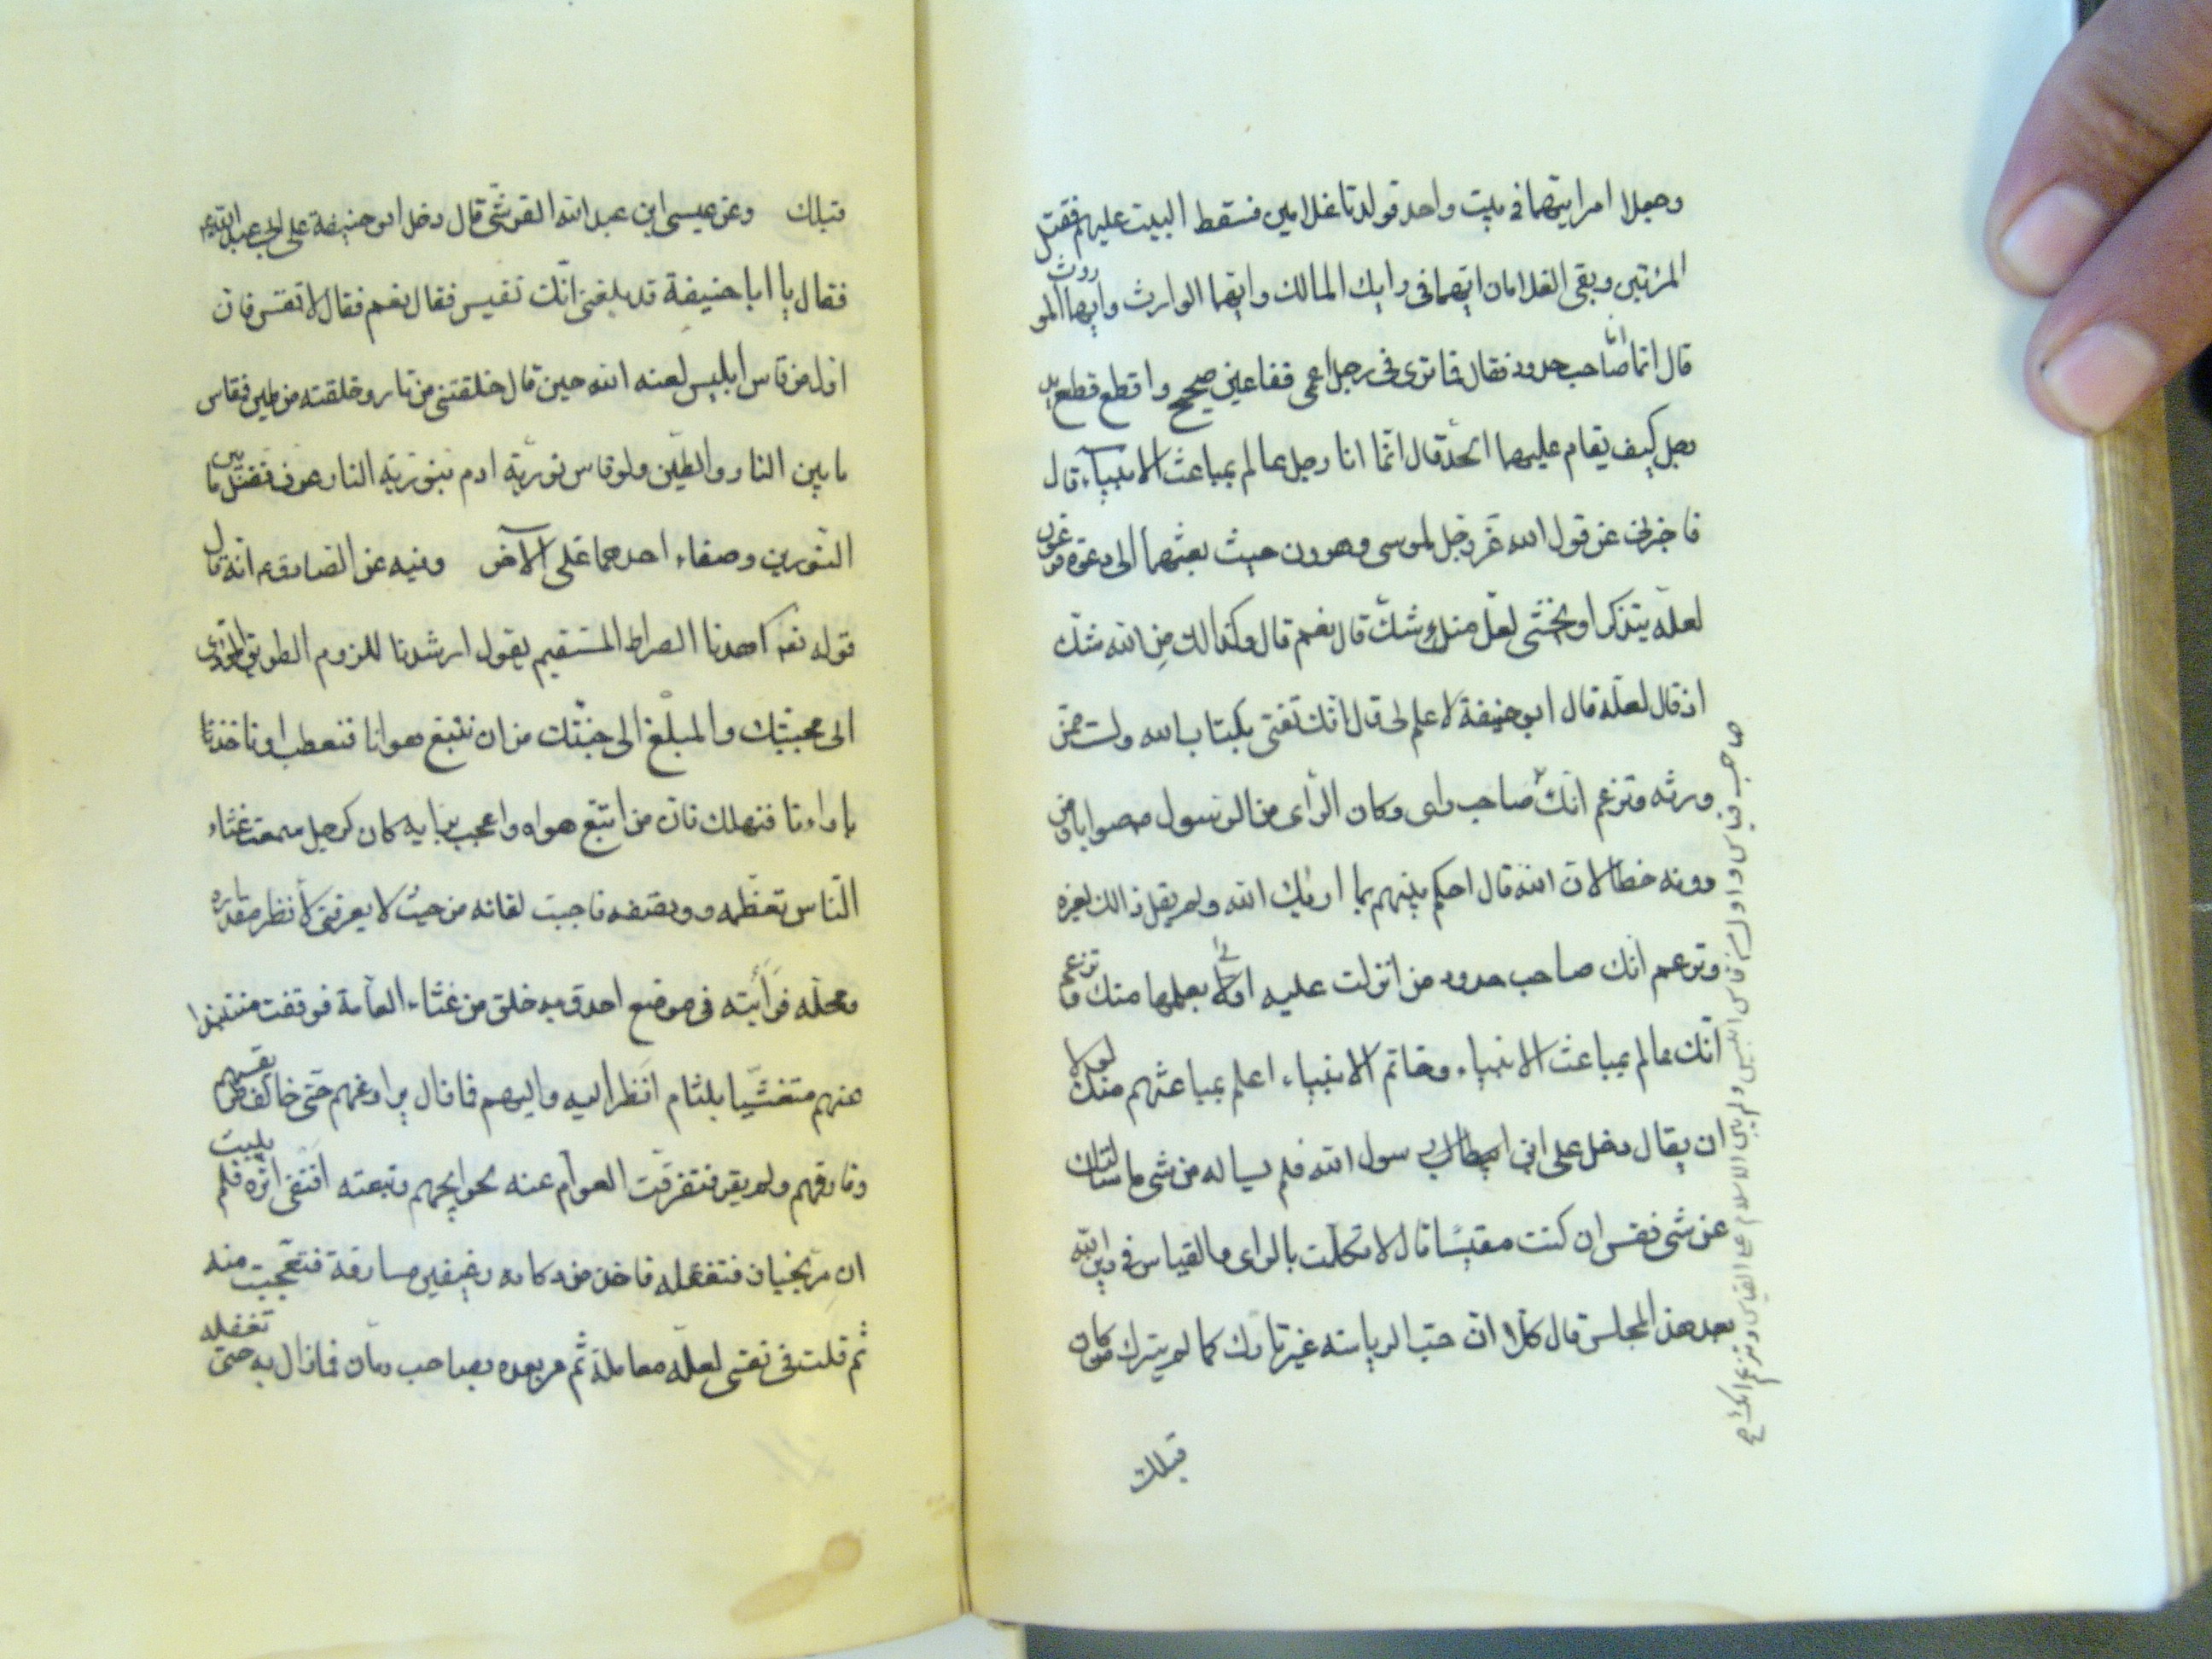 وجعلا امراتيهما فى بيت واحد فولدتا غلامين فسقط البيت عليهم فقتل
المرئتين وبقى الغلامان ايهما فى رايك المالك وايهما الوارث وايهما الموروث
قال انما انا صاحب حدود فقال فما ترى فى رجل اعمى فقاعين صحيح واقطع قطع يد
رجل كيف يقام عليهما الحد قال انما انا رجل عالم بمباعث الانبياء قال
فاخبرنى عن قول الله عز وجل لموسى وهرون حيث بعثهما الى دعوة فرعون
لعله يتذكر او يخشى لعل منك شك قال نعم قال وكذالك من الله شك
اذ قال لعله قال ابو حنيفة لا علم لى قال انك تفتى بكتاب الله ولست ممن
ورثه وتزعم انك صاحب راى وكان الراى من الرسول ص صوابا ومن
دونه خطا لان الله قال احكم بينهم بما اريك الله ولم يقل ذالك لغيره
وتزعم انك صاحب حدود من انزلت عليه اولى بعلمها منك وتزعم
انك عالم بمباعث الانبياء وخاتم الانبياء اعلم بمباعثهم منك لولا
ان يقال دخل على ابن رسول الله فلم يساله من شى ما سالتك
عن شى فقس ان كنت مقيسا قال لا تكلمت بالراى والقياس فى دين الله
بعد هذ المجلس قال كلا ان حب الرياسة غير تاركك كما لم يترك من كان
قبلك
صاحب قياس واول من قاس ابليس ولم يبن الاسلام على القياس وتزعم انك
قبلك وعن عيسى ابن عبد الله القرشى قال دخل ابو حنيفة على ابى عبد الله ع
فقال يا ابا حنيفة قد بلغنى انك تقيس فقال نعم فقال لا تقس فان
اول من قاس ابليس لعنه الله حين قال خلقتنى من نار وخلقته من طين فقاس
ما بين النار والطين ولو قاس نورية ادم بنورية النار عرف فضل ما بين
النورين وصفاء احدهما على الآخر وفيه عن الصادق ع انه قال
قوله تعه اهدنا الصراط المستقيم يقول ارشدنا للزوم الطريق المؤدى
الى محبتك والمبلغ الى جنتك من ان نتبع هوانا فنعطب او ناخذ
باراءنا فنهلك فان من اتبع هواه واعجب برايه كان كرجل سمعت غثاء
الناس تعظمه وتصفه فاحببت لقائه من حيث لا يعرفنى لأنظر مقداره
ومحله فرأيته فى موضع احدق به خلق من غثاء العامة فوقفت منتبذا
عنهم متغشيا بلثام انظر اليه واليهم فما زال يراوغهم حتى خالف طريقهم
وفارقهم ولم يقر فتفرقت العوام عنه لحوايجهم وتبعته اقتفى اثره فلم يلبث
ان مر بخباز فتغفله فاخذ من دكانه رغيفين مسارقة فتعجبت منه
ثم قلت فى نفسى لعله معاملة ثم مر بعده بصاحب رمان فما زال به حتى تغفله